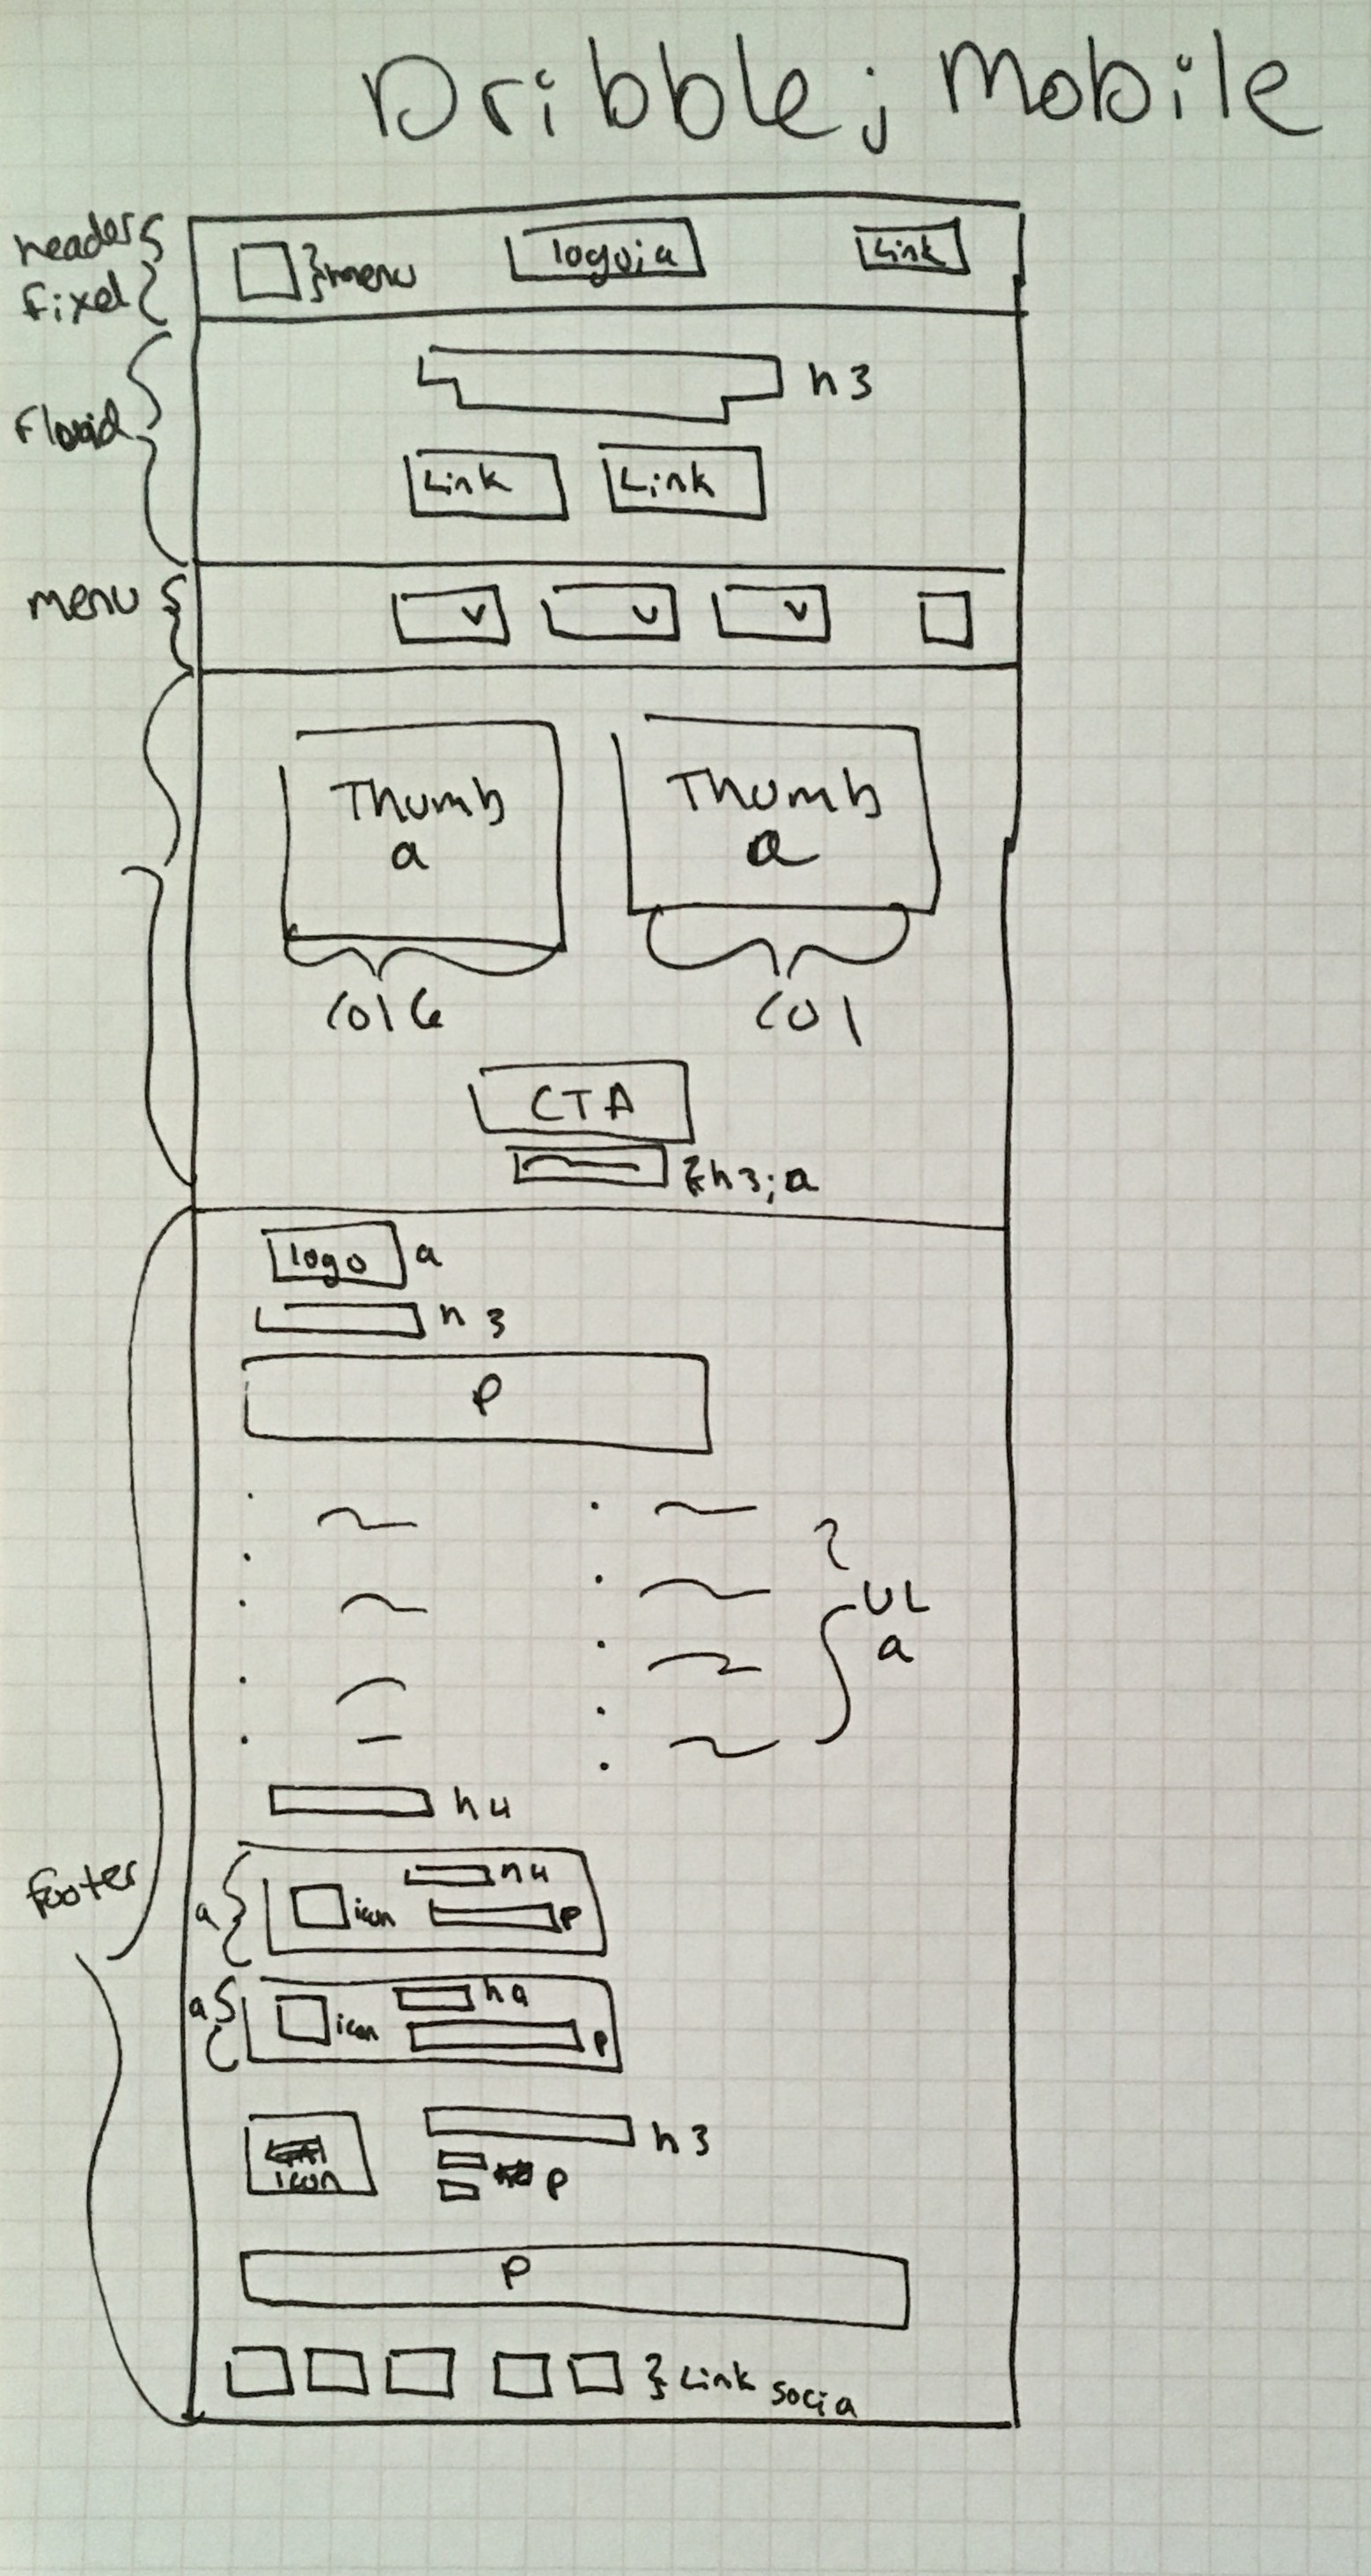 Dribble; Mobile
header
fixed
menu
logo; a
Link
Fluid
h3
Link
Link
menu
Thumb
a
Thumb
a
col 6
col
CTA
h3; a
logo
a
h3
P
UL
a
h4
footer
a
icon
h4
P
a
icon
h4
P
icon
h3
P
P
Link socia